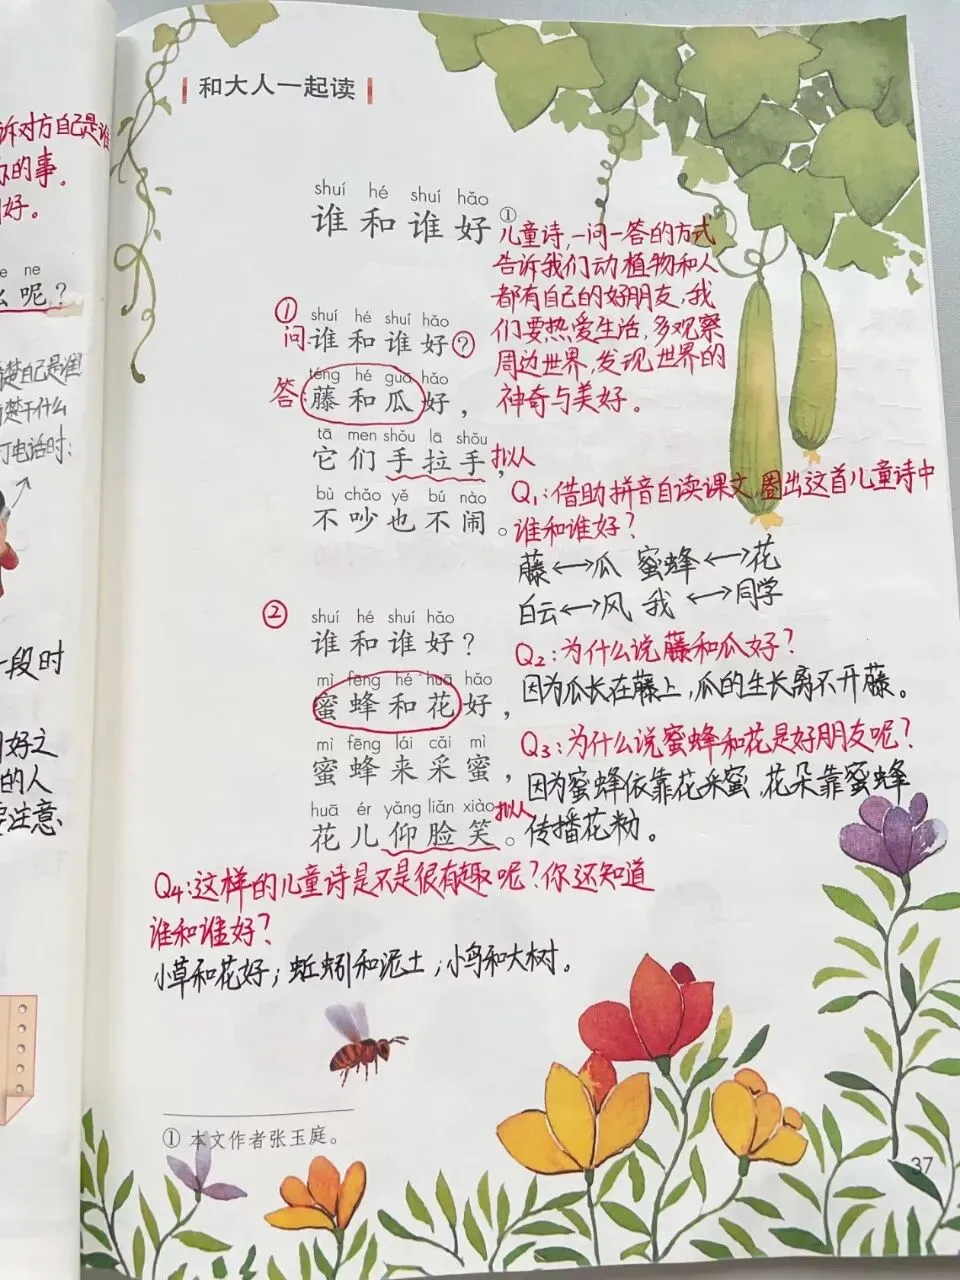 诉对方自己是谁
办的事。
好。
e ne
么呢？
楚自己是谁
楚干什么
打电话时：
一段时
好之
的人
要注意
和大人一起读
shuí hé shuí hǎo
谁和谁好①
儿童诗，一问一答的方式
告诉我们动植物和人
都有自己的好朋友，我
们要热爱生活，多观察
周边世界，发现世界的
神奇与美好。
① shuí hé shuí hǎo
问 谁和谁好？
téng hé guā hǎo
答：藤和瓜好，
tā men shǒu lā shǒu
它们手拉手，拟人
bù chǎo yě bú nào
不吵也不闹。
Q1：借助拼音自读课文，圈出这首儿童诗中
谁和谁好？
藤⟷瓜 蜜蜂⟷花
白云⟷风 我⟷同学
② shuí hé shuí hǎo
谁和谁好？
Q2：为什么说藤和瓜好？
mì fēng hé huā hǎo
蜜蜂和花好，
因为瓜长在藤上，瓜的生长离不开藤。
Q3：为什么说蜜蜂和花是好朋友呢？
mì fēng lái cǎi mì
蜜蜂来采蜜，
因为蜜蜂依靠花采蜜，花朵靠蜜蜂
传播花粉。
huā ér yǎng liǎn xiào
花儿仰脸笑。拟人
Q4：这样的儿童诗是不是很有趣呢？你还知道
谁和谁好？
小草和花好；蚯蚓和泥土；小鸟和大树。
① 本文作者张玉庭。
37